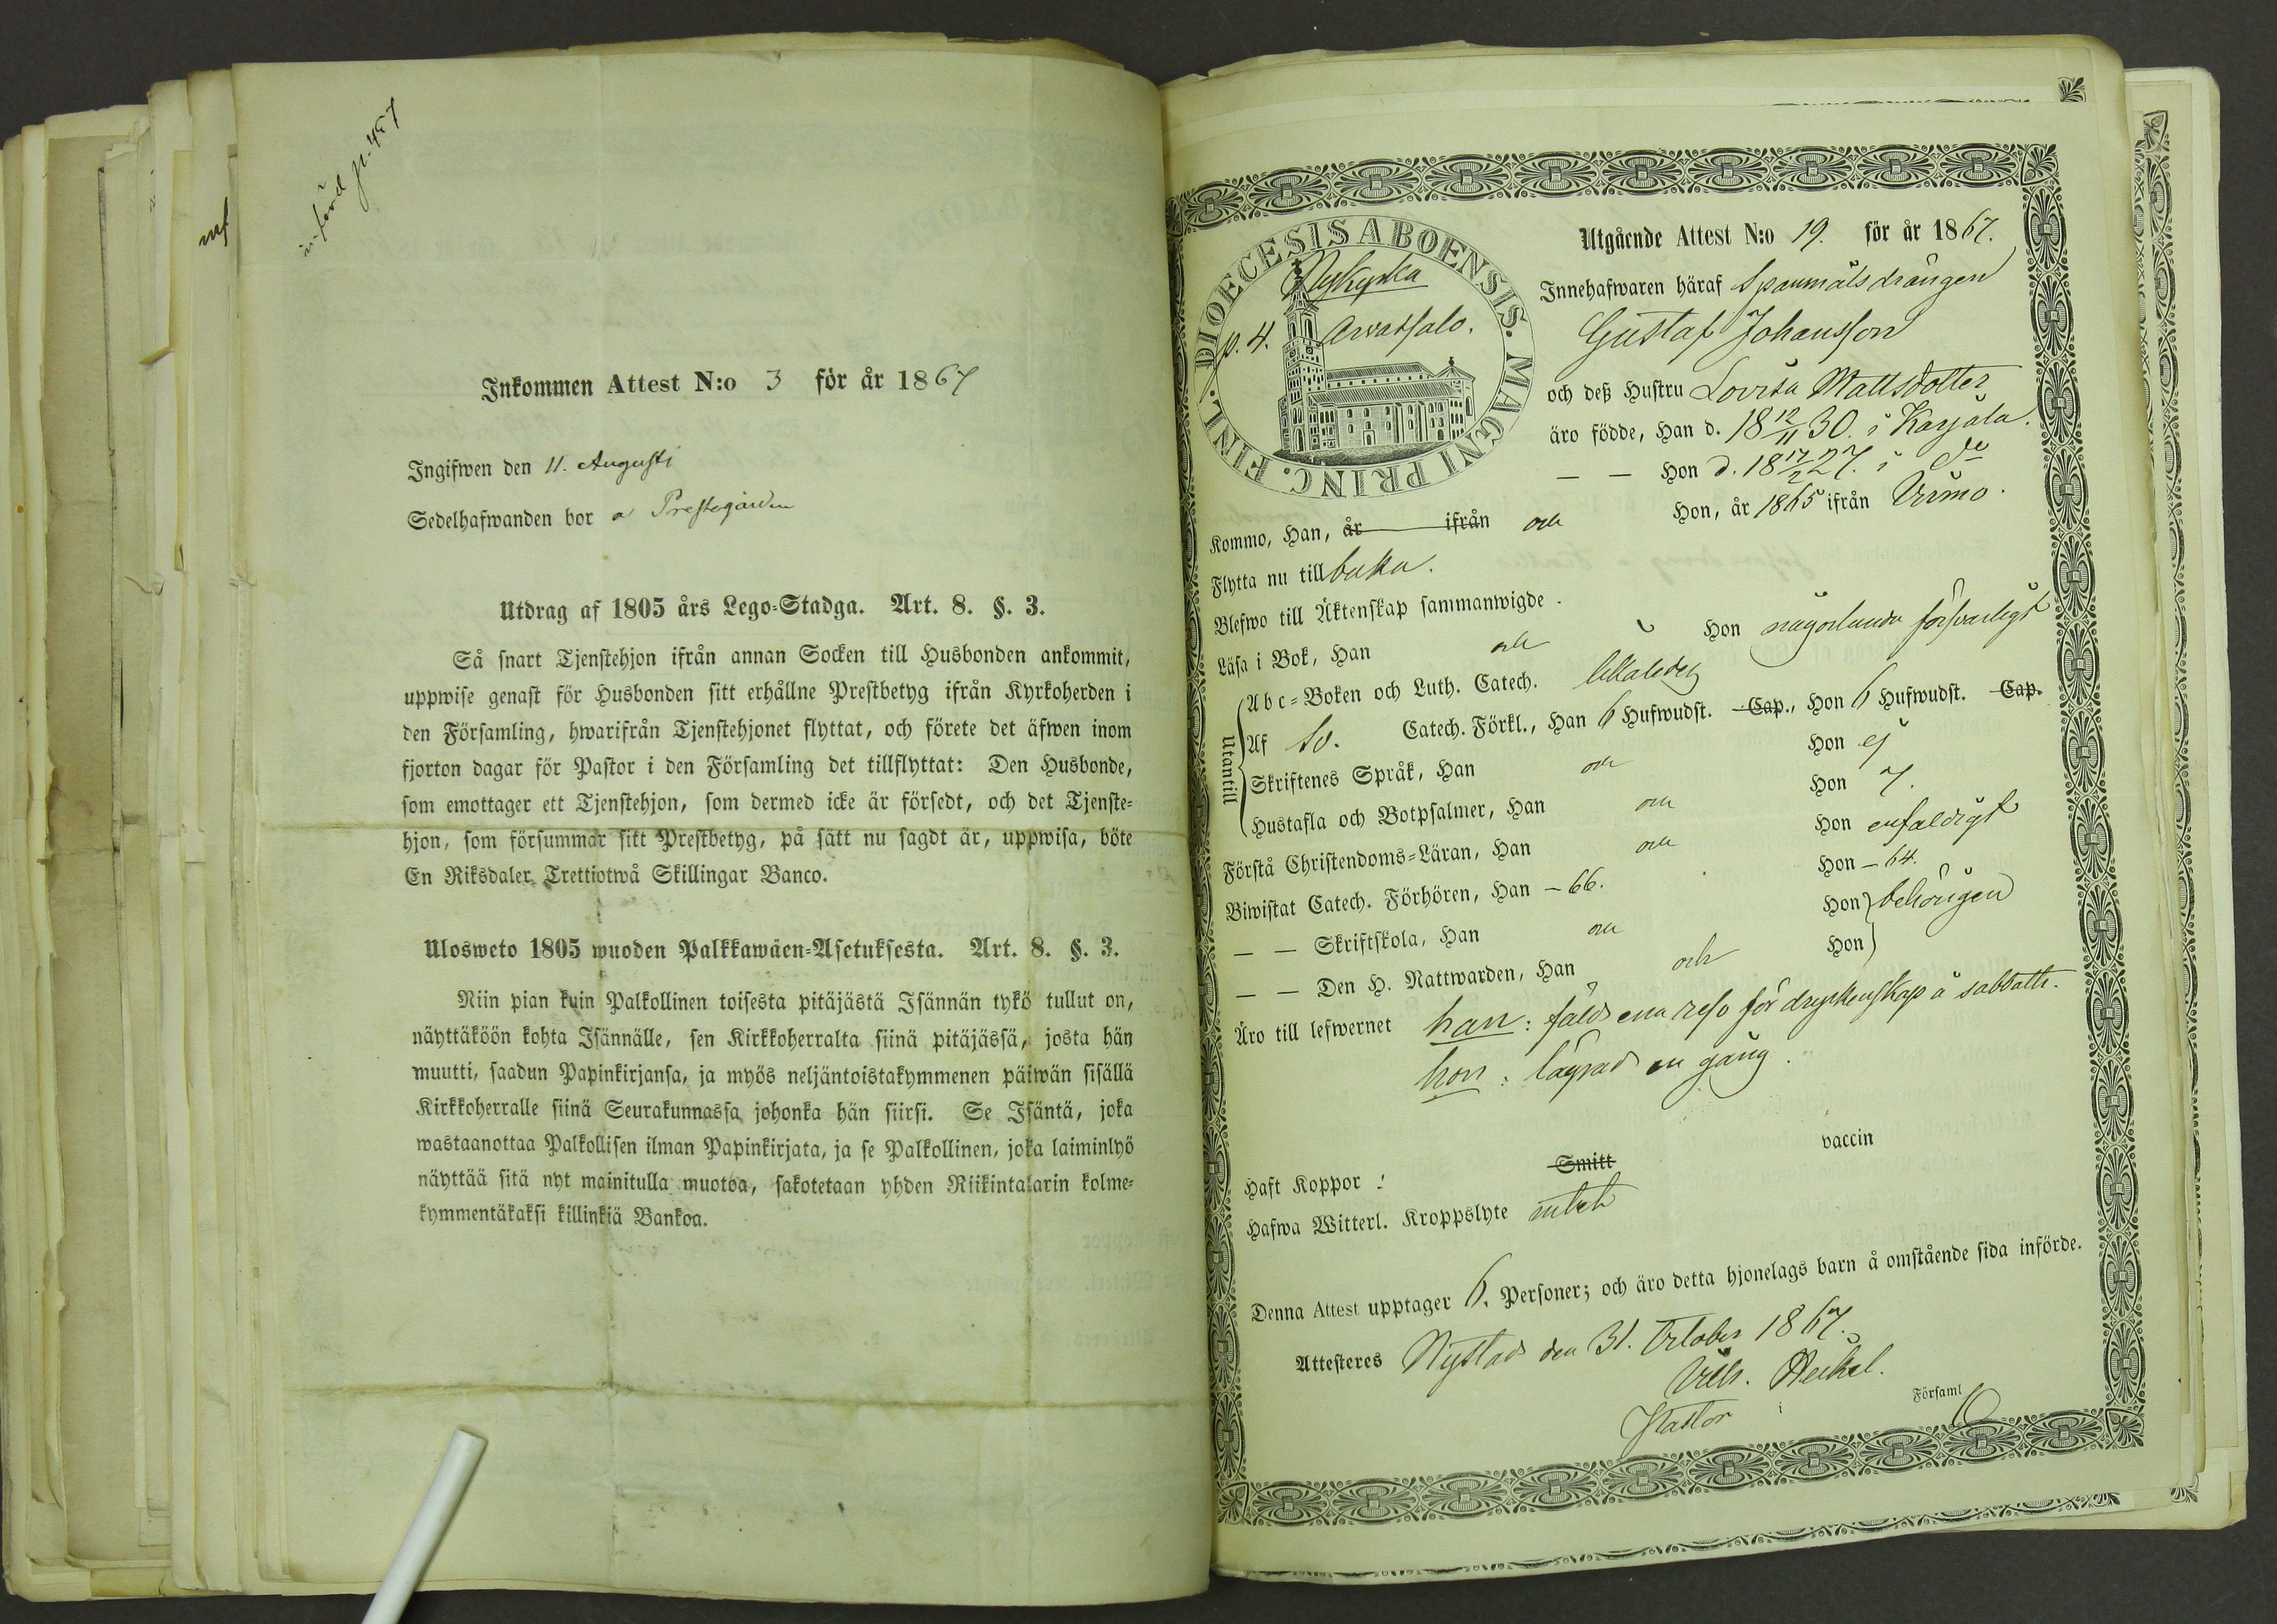 införd p. 457
Inkommen Attest N:o 3 för år 1867
Ingifwen den 11. Augusti
Sedelhafwanden bor a Prestegården
Utdrag af 1805 års Lego-Stadga. Art. 8. §. 3.
Så snart Tjenstehjon ifrån annan Socken till Husbonden ankommit,
uppwise genast för Husbonden sitt erhållne Prestbetyg ifrån Kyrkoherden i
den Församling, hwarifrån Tjenstehjonet flyttat, och förete det äfwen inom
fjorton dagar för Pastor i den Församling det tillflyttat: Den Husbonde,
som emottager ett Tjenstehjon, som dermed icke är försedt, och det Tjenste-
hjon, som försummar sitt Prestbetyg, på sätt nu sagdt är, uppwisa, böte
En Riksdaler Trettiotwå Skillingar Banco.
Ulosweto 1805 wuoden Palkkawäen-Asetuksesta. Art. 8. §. 3.
Niin pian kuin Palkollinen toisesta pitäjästä Isännän tykö tullut on,
näyttäköön kohta Isännälle, sen Kirkkoherralta siinä pitäjässä, josta hän
muutti, saadun Papinkirjansa, ja myös neljäntoistakymmenen päiwän sisällä
Kirkkoherralle siinä Seurakunnassa johonka hän siirsi. Se Isäntä, joka
wastaanottaa Palkollisen ilman Papinkirjata, ja se Palkollinen, joka laiminlyö
näyttää sitä nyt mainitulla muotoa, sakotetaan yhden Riikintalarin kolme-
kymmentäkaksi killinkiä Bankoa.
DIOECESIS ABOENSIS. MAGNI PRINC. FINL.
Nykyrka
p. 4. Arvassalo.
Utgående Attest N:o 19. för år 1867.
Innehafwaren häraf Spanmålsdrängen
Gustaf Johansson
och deß Hustru Lovisa Mattsdotter
äro födde, Han d. 18 12/11 30. i Karjala.
— — Hon d. 18 17/2 27. i do
Kommo, Han, år ifrån och Hon, år 1865 ifrån Virmo.
Flytta nu till baka.
Blefwo till Äktenskap sammanwigde.
Läsa i Bok, Han och Hon någorlunda försvarligt
Utantill
Abc-Boken och Luth. Catech. likaledes
Af Sv. Catech. Förkl., Han 6 Hufwudst. Cap., Hon 6 Hufwudst. Cap.
Skriftenes Språk, Han och Hon ej
Hustafla och Botpsalmer, Han och Hon ej.
Förstå Christendoms-Läran, Han och Hon enfaldigt
Biwistat Catech. Förhören, Han – 66. Hon – 64.
— — Skriftskola, Han och Hon behörigen
— — Den H. Nattwarden, Han och Hon
Äro till lefwernet han: fälld ena reso för dryckenskap å sabbath.
hon: lägrad en gång.
Haft Koppor: Smitt vaccin
Hafwa Witterl. Kroppslyte intet
Denna Attest upptager 6. Personer; och äro detta hjonelags barn å omstående sida införde.
Attesteres Nystad den 31. October 1867.
Vilh. Heikel.
Pastor i Församl